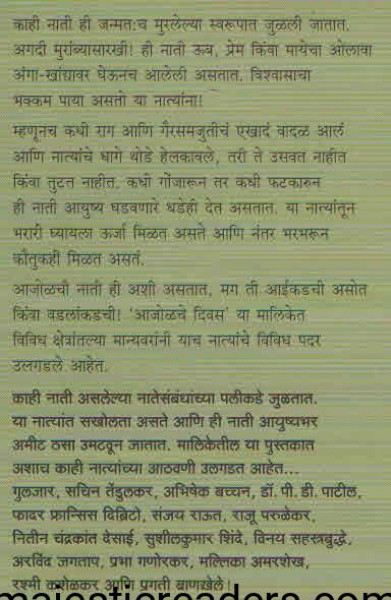 काही नाती ही जन्मत:च मुरलेल्या स्वरूपात जुळली जातात.
अगदी मुरांब्यासारखी! ही नाती ऊब, प्रेम किंवा मायेचा ओलावा
अंगा-खांद्यावर घेऊनच आलेली असतात. विश्वासाचा
भक्कम पाया असतो या नात्यांना!
म्हणूनच कधी राग आणि गैरसमजुतीचं एखादं वादळ आलं
आणि नात्यांचे धागे थोडे हेलकावले, तरी ते उसवत नाहीत
किंवा तुटत नाहीत. कधी गोंजारून तर कधी फटकारुन
ही नाती आयुष्य घडवणारे धडेही देत असतात. या नात्यांतून
भरारी घ्यायला ऊर्जा मिळत असते आणि नंतर भरभरून
कौतुकही मिळत असतं.
आजोळची नाती ही अशी असतात, मग ती आईकडची असोत
किंवा वडलांकडची! 'आजोळचे दिवस' या मालिकेत
विविध क्षेत्रांतल्या मान्यवरांनी याच नात्यांचे विविध पदर
उलगडले आहेत.
काही नाती असलेल्या नातेसंबंधांच्या पलीकडे जुळतात.
या नात्यांत सखोलता असते आणि ही नाती आयुष्यभर
अमीट ठसा उमटवून जातात. मालिकेतील या पुस्तकात
अशाच काही नात्यांच्या आठवणी उलगडत आहेत...
गुलजार, सचिन तेंडुलकर, अभिषेक बच्चन, डॉ. पी. डी. पाटील,
फादर फ्रान्सिस दिब्रिटो, संजय राऊत, राजू परुळेकर,
नितीन चंद्रकांत देसाई, सुशीलकुमार शिंदे, विनय सहस्त्रबुद्धे,
अरविंद जगताप, प्रभा गणोरकर, मल्लिका अमरशेख,
रश्मी कशेळकर आणि प्रगती बाणखेले!
majesticreaders.com